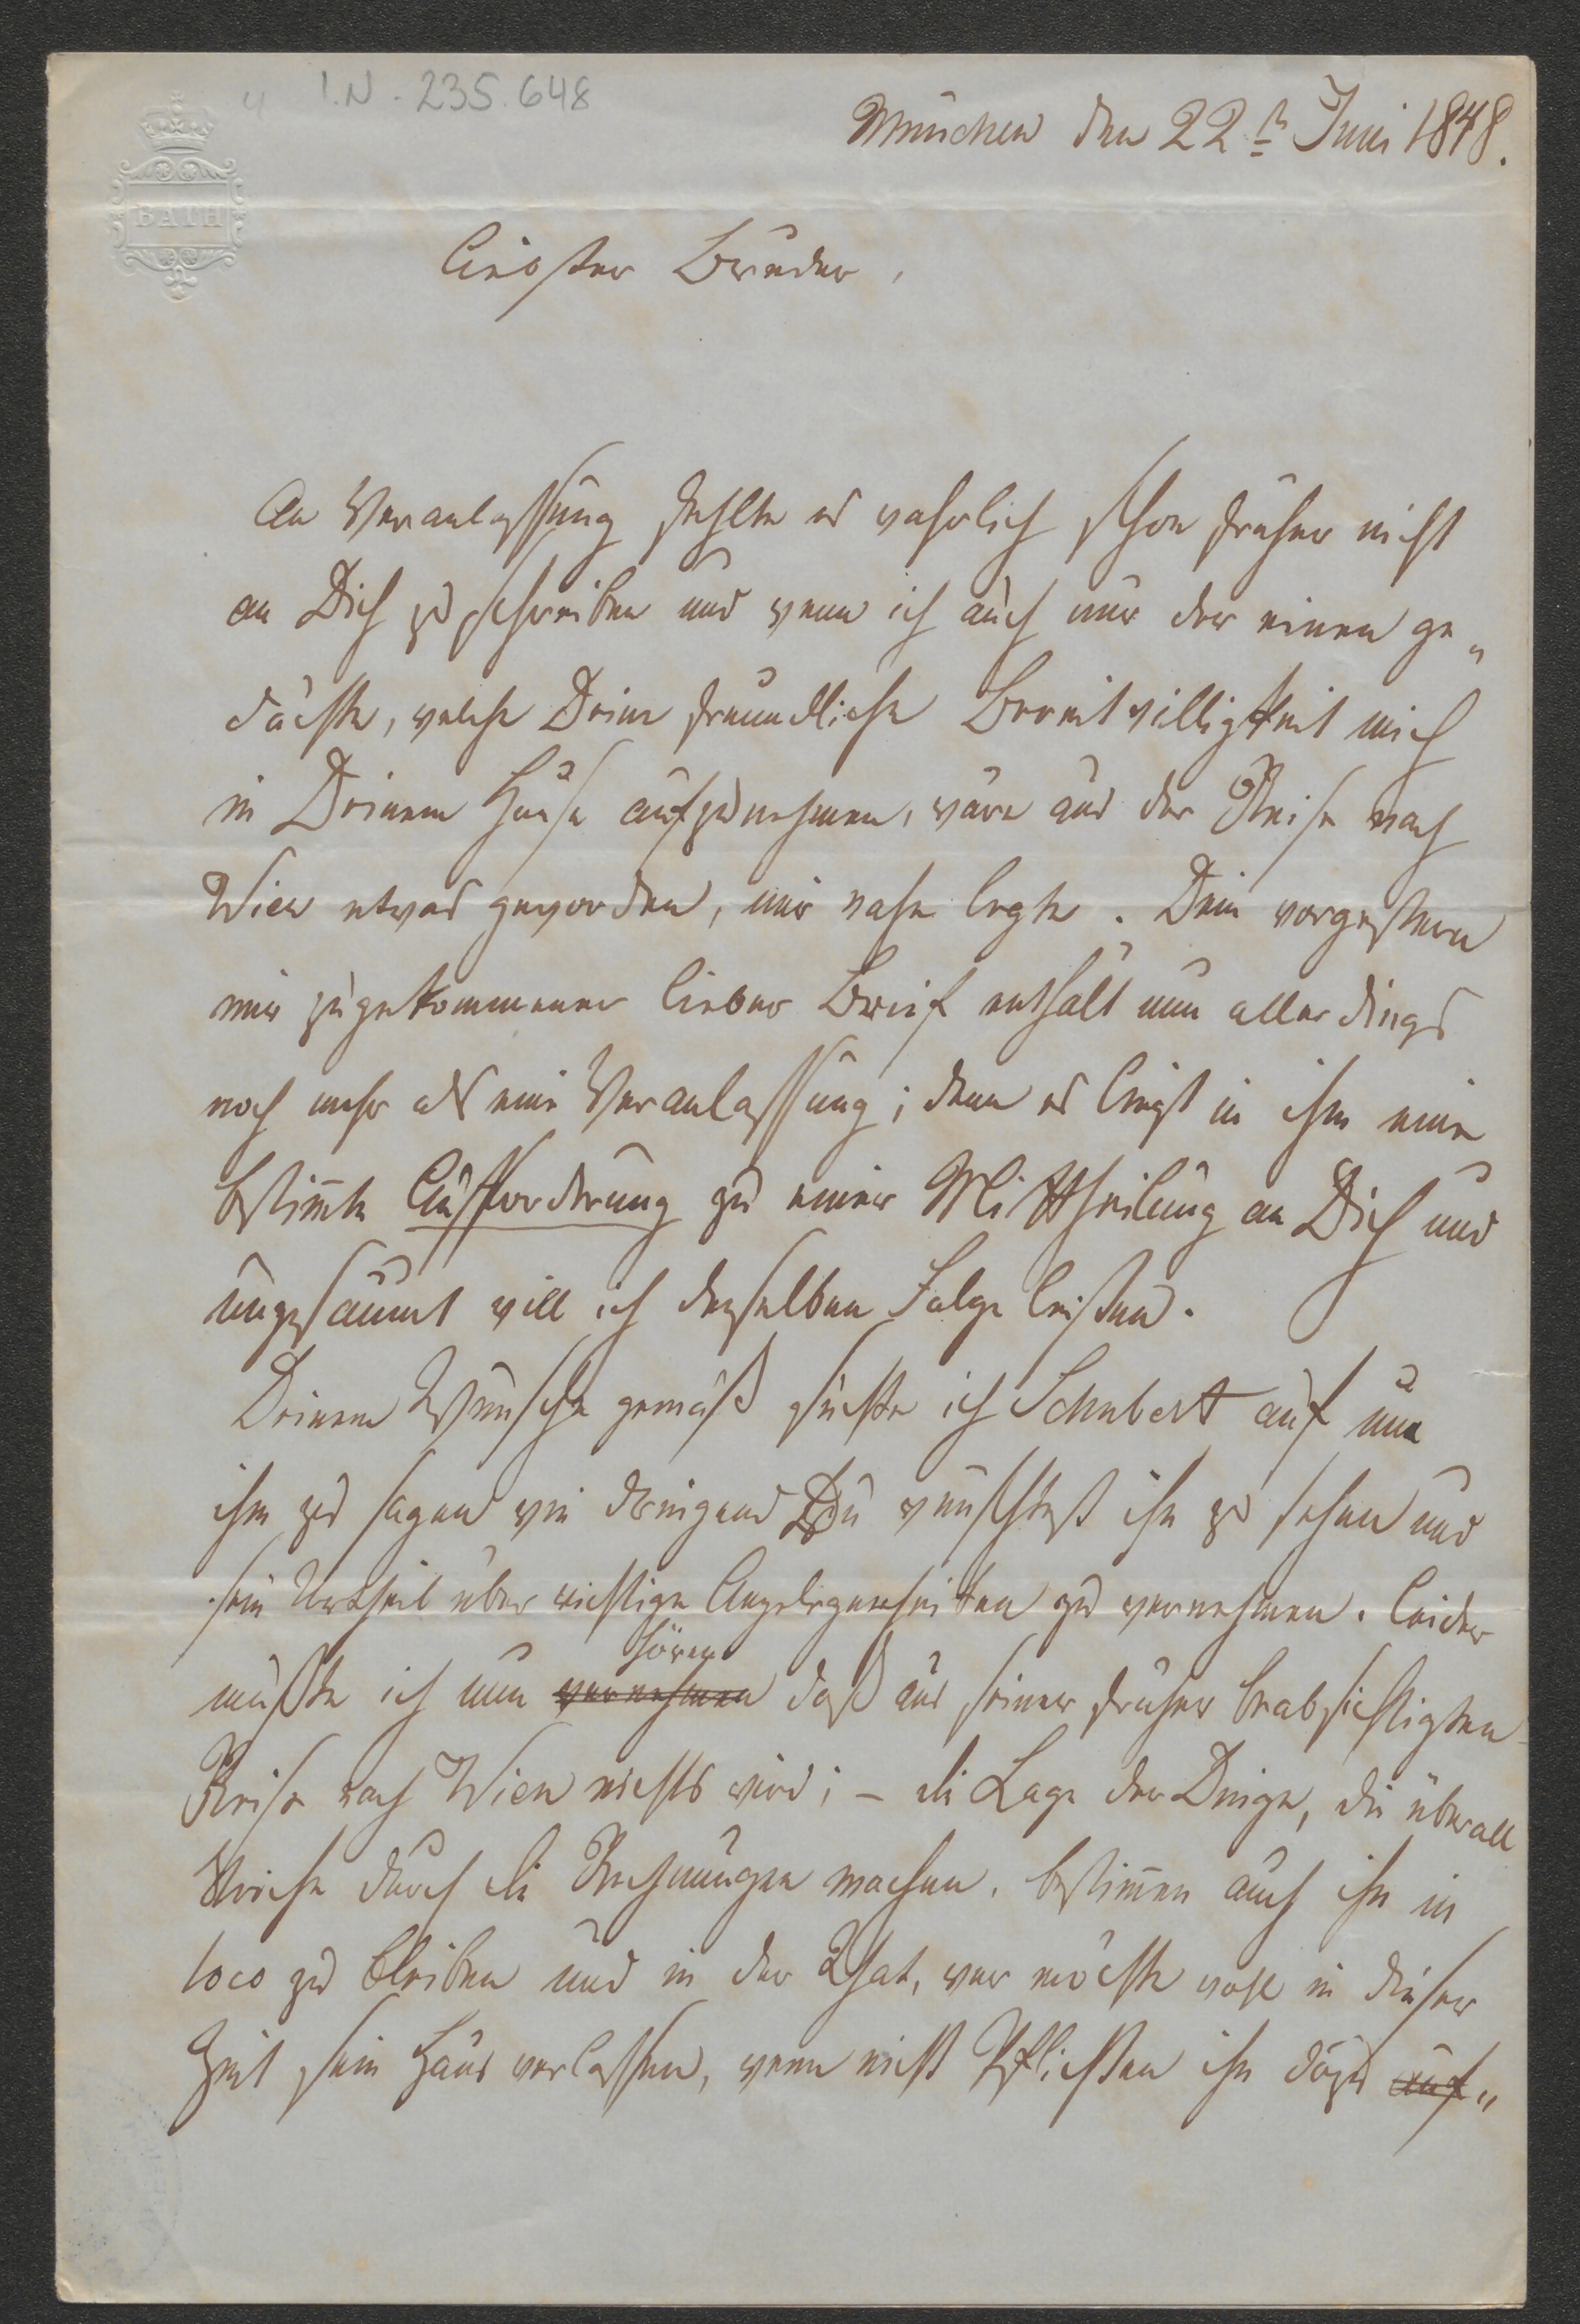 4 I.N. 235.648
BATH
München den 22t Juni 1848.
Liebster Bruder,
An Veranlassung fehlte es wahrlich schon früher nicht
an Dich zu schreiben und wenn ich auch nur der einen ge„
dächte, welche Deine freundliche Bereitwilligkeit mich
in Deinem Hause aufzunehmen, wäre aus der Reise nach
Wien etwas geworden, mir nahe legte. Dein vorgestern
mir zugekommener lieber Brief enthält nun allerdings
noch mehr als eine Veranlassung; denn es liegt in ihm eine
bestim̅te Aufforderung zu einer Mittheilung an Dich und
ungesäumt will ich derselben Folge leisten.
Deinem Wunsche gemäß suchte ich Schubert auf um
ihm zu sagen wie dringend Du wünschtest ihn zu sehen und
sein Urtheil über wichtige Angelegenheiten zu vernehmen. Leider
hören
mußte ich nun vernehmen daß aus seiner früher beabsichtigten
Reise nach Wien nichts wird; – die Lage der Dinge, die überall
Striche durch die Rechnungen machen, bestim̅en auch ihn in
loco zu bleiben und in der That, wer möchte wohl in dieser
Zeit sein Haus verlassen, wenn nicht Pflichten ihn dazu auf„